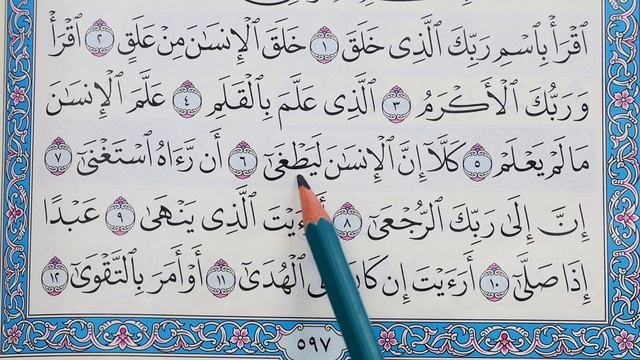 ٱقۡرَأۡ بِٱسۡمِ رَبِّكَ ٱلَّذِى خَلَقَ ١ خَلَقَ ٱلۡإِنسَٰنَ مِنۡ عَلَقٍ ٢ ٱقۡرَأۡ
وَرَبُّكَ ٱلۡأَكۡرَمُ ٣ ٱلَّذِى عَلَّمَ بِٱلۡقَلَمِ ٤ عَلَّمَ ٱلۡإِنسَٰنَ
مَا لَمۡ يَعۡلَمۡ ٥ كَلَّآ إِنَّ ٱلۡإِنسَٰنَ لَيَطۡغَىٰٓ ٦ أَن رَّءَاهُ ٱسۡتَغۡنَىٰٓ ٧
إِنَّ إِلَىٰ رَبِّكَ ٱلرُّجۡعَىٰٓ ٨ أَرَءَيۡتَ ٱلَّذِى يَنۡهَىٰ ٩ عَبۡدًا
إِذَا صَلَّىٰٓ ١٠ أَرَءَيۡتَ إِن كَانَ ٱلۡهُدَىٰٓ ١١ أَوۡ أَمَرَ بِٱلتَّقۡوَىٰٓ ١٢
٥٩٧